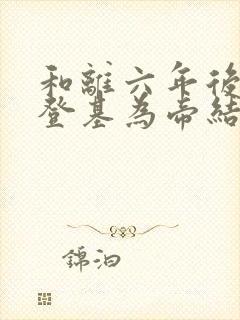 和離六年後
登基為帝結
錦泊